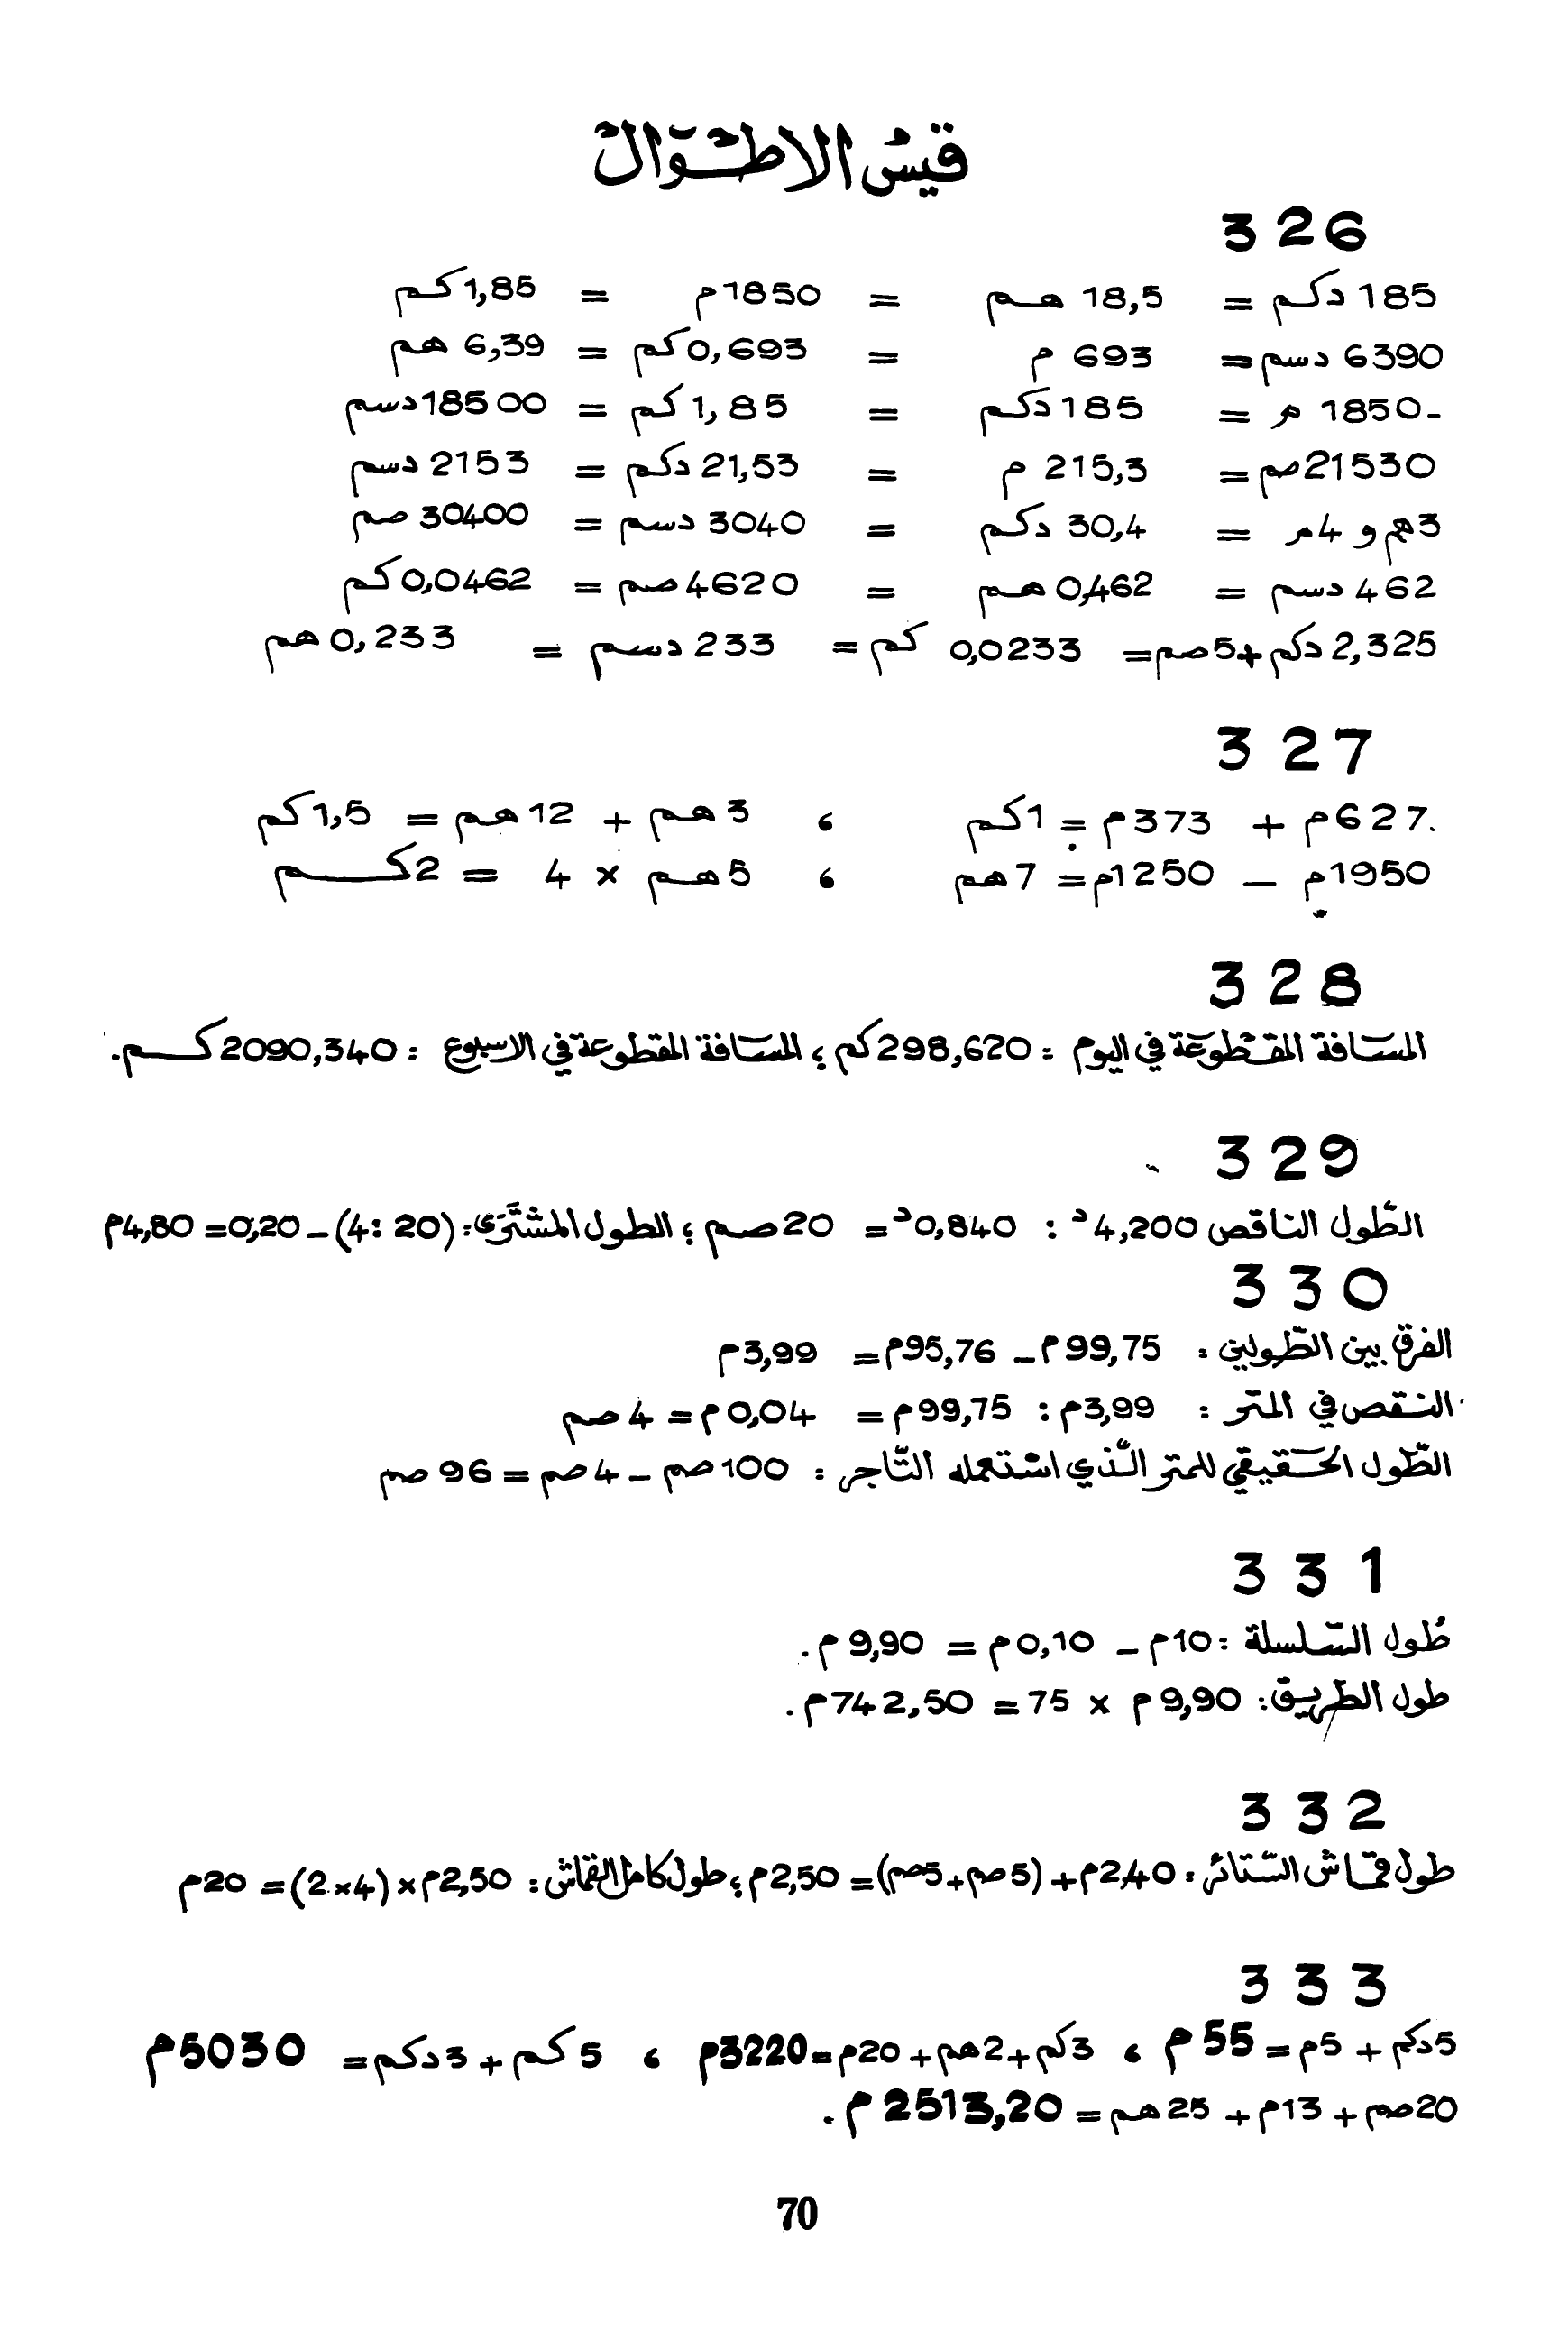 قيس الاطوال
326
185 دكم = 18,5 هم = 1850م = 1,85كم
6390 دسم = 693 م = 0,693كم = 6,39 هم
1850- م = 185دكم = 1,85 كم = 18500دسم
21530صم = 215,3 م = 21,53 دكم = 2153 دسم
3هم و 4م = 30,4 دكم = 3040 دسم = 30400 صم
462 دسم = 0,462 هم = 4620صم = 0,0462كم
2,325 دكم+5صم= 0,0233 كم = 233 دسم = 0,233 هم
327
627م + 373م = 1كم ، 3هم + 12هم = 1,5كم
1950م - 1250م = 7هم ، 5هم × 4 = 2كم
328
المسافة المقطوعة في اليوم : 298,620كم ؛ المسافة المقطوعة في الاسبوع : 2090,340كم.
329
الطّول الناقص 4,200د : 0,840د = 20صم ؛ الطول المشترَى: (20 :4) - 0,20= 4,80م
330
الفرق بين الطّولين : 99,75م - 95,76م = 3,99م
النقص في المتر : 3,99م : 99,75م = 0,04م = 4صم
الطّول الحقيقي للمتر الّذي استعمله التّاجر : 100صم - 4صم = 96صم
331
طول السّلسلة : 10م - 0,10م = 9,90م.
طول الطريق: 9,90م × 75 = 742,50م.
332
طول قماش السّتائر : 2,40م+ (5صم+5صم)= 2,50م ؛ طول كامل القماش : 2,50م×(4×2) = 20م
333
5دكم + 5م = 55م ، 3كم+2هم+20م=3220م ، 5كم+3دكم= 5030م
20صم + 13م + 25هم = 2513,20م.
70